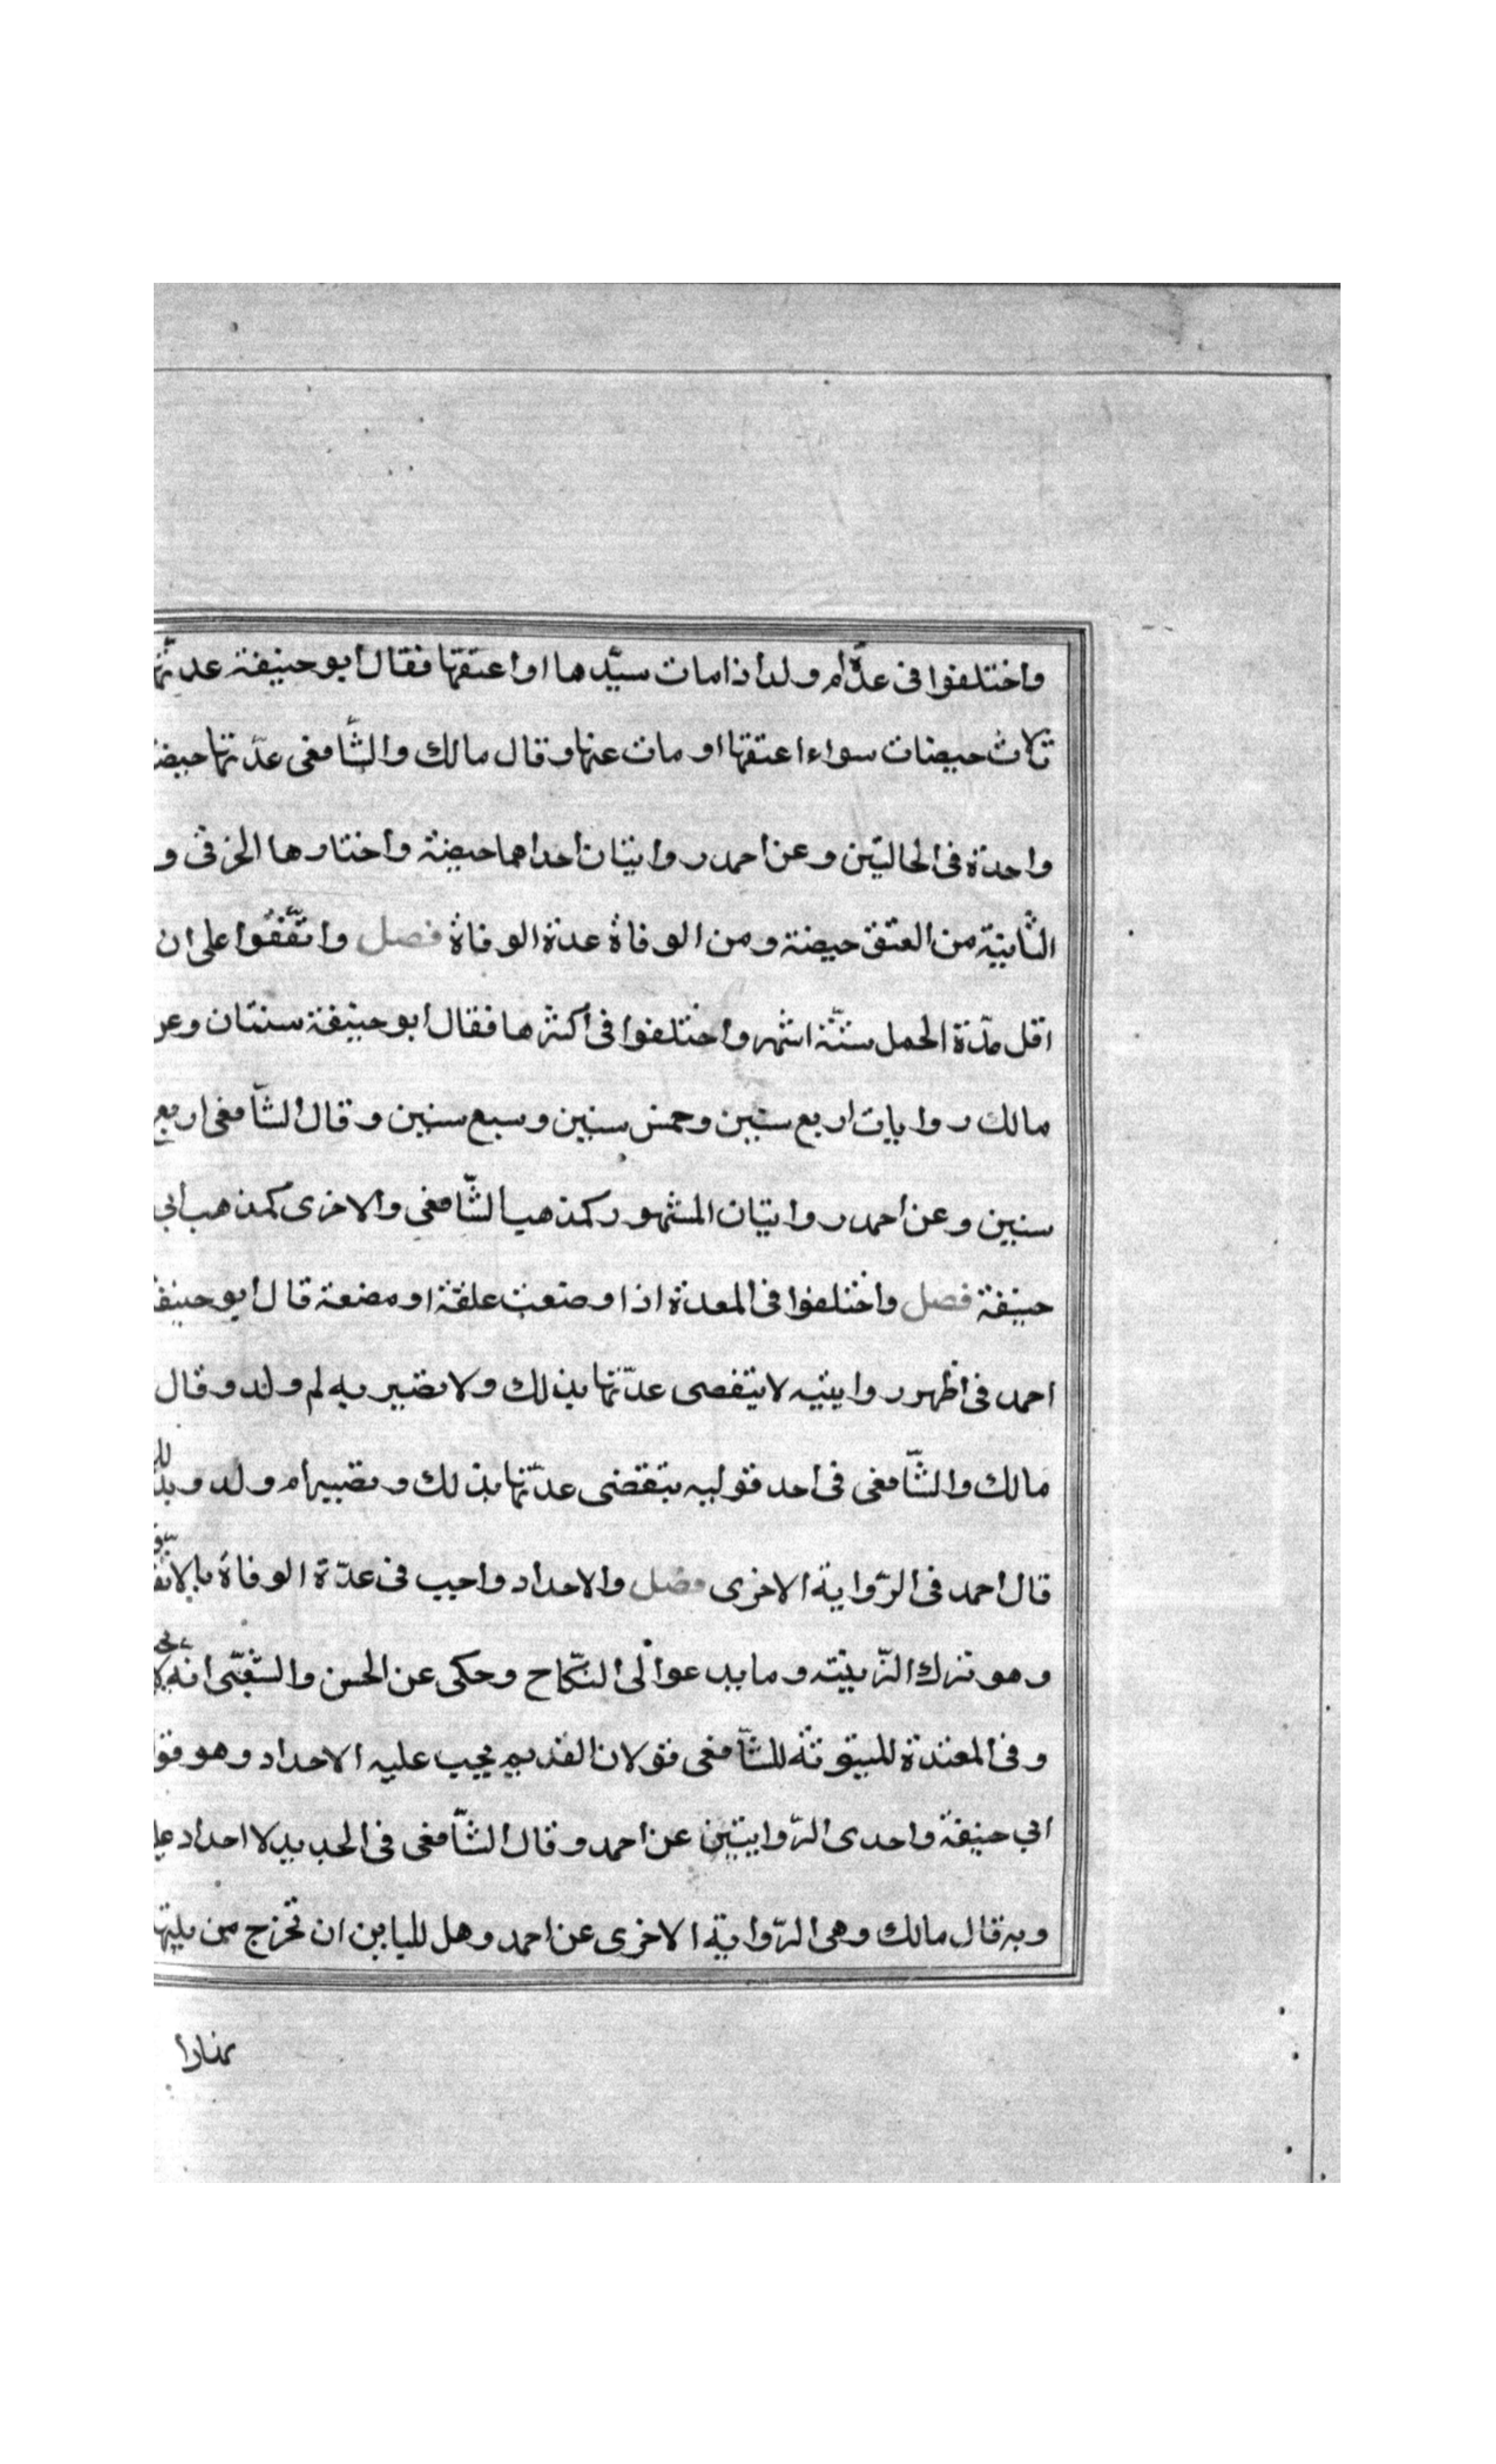 واختلفوا فى عدّة ام ولد اذا مات سيّدها او اعتقها فقال ابو حنيفة عدتّها
ثلاث حيضات سواء اعتقها او مات عنها وقال مالك والشّافعى عدّتها حيضة
واحدة فى الحالتين وعن احمد روايتان احداهما حيضة واختارها الخرقى و
الثّانية من العتق حيضة ومن الوفاة عدة الوفاة فصل واتّفقوا على ان
اقل مدّة الحمل ستّة اشهر واختلفوا فى اكثرها فقال ابو حنيفة سنتان وعن
مالك روايات اربع سنين وخمس سنين وسبع سنين وقال الشّافعى اربع
سنين وعن احمد روايتان المشهور كمذهب الشّافعى والاخرى كمذهب ابى
حنيفة فصل واختلفوا فى المعدة اذا وضعت علقة او مضغة قال ابو حنيفة
احمد فى اظهر روايتيه لا ينقصى عدّتها بذلك ولا تصير به لم ولد وقال
مالك والشّافعى فى احد قوليه ينقضى عدّتها بذلك وتصيرام ولد وبذلك
قال احمد فى الرّواية الاخرى فصل والاحداد واجب فى عدّة الوفاة بالاتفاق
وهو ترك الزّينته وما يدعوا لى النكاح وحكى عن الحسن والشّعبّى انه لا يجب
وفى المعتدة للمبتوتة للشّافعى قولان القديم يجب عليه الاحداد وهو قول
ابي حنيفة واحدى الرّوايتين عن احمد وقال الشّافعى فى الجديد لا احداد عليها
وبه قال مالك وهى الرّواية الاخرى عن احمد وهل للباين ان تخرج من بيتها
نهارا